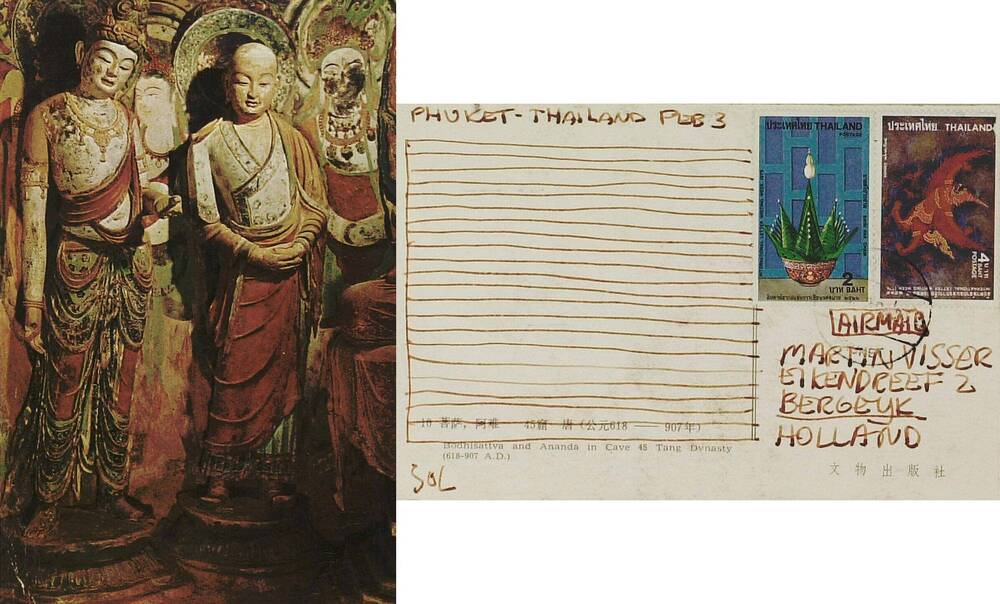 PHUKET-THAILAND FEB 3
ประเทศไทย THAILAND
POSTAGE
2
บาท BAHT
ประเทศไทย THAILAND
4 บาท
BAHT
POSTAGE
INTERNATIONAL LETTER WRITING WEEK
AIRMAIL
MARTIN VISSER
EIKENDREEF 2
BERGEYK
HOLLAND
10 菩萨，阿难 45窟 唐（公元618 — 907年）
Bodhisattva and Ananda in Cave 45 Tang Dynasty
(618-907 A.D.)
SOL
文物出版社